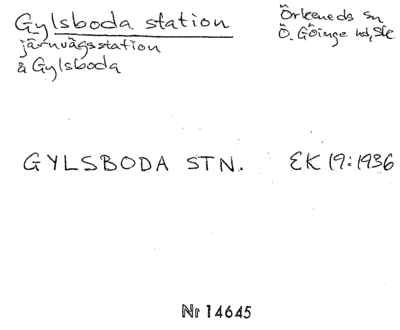 Gylsboda station
järnvägsstation
å Gylsboda
Örkeneds sn
Ö. Göinge hd, Ske
GYLSBODA STN. EK 19:1936
Nr 14645